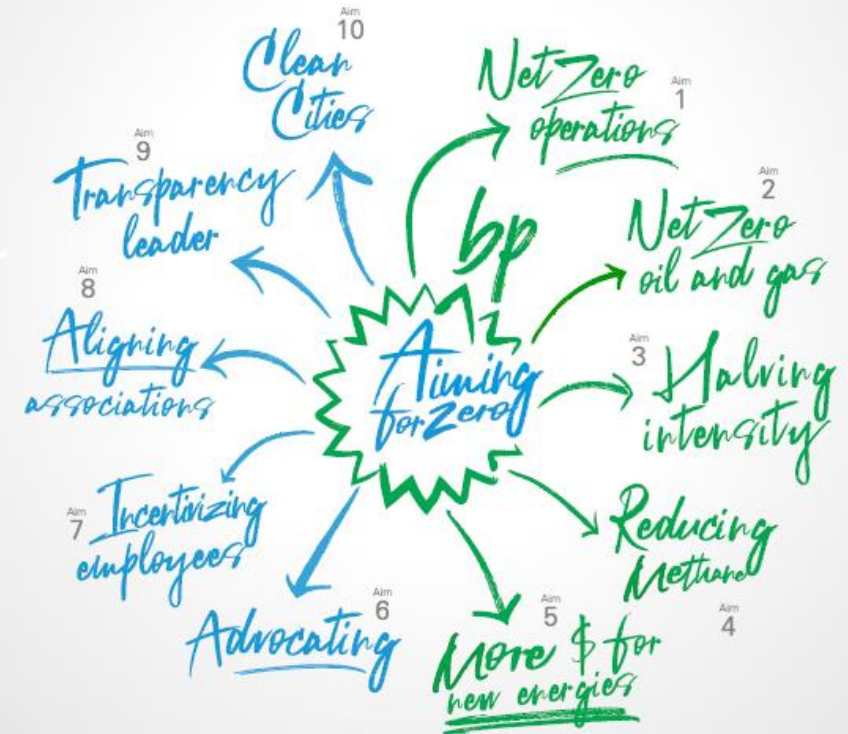 bp
Aiming
for zero
Aim
1
Net Zero
operations
Aim
2
Net Zero
oil and gas
Aim
3
Halving
intensity
Aim
4
Reducing
Methane
Aim
5
More $ for
new energies
Aim
6
Advocating
Aim
7
Incentivizing
employees
Aim
8
Aligning
associations
Aim
9
Transparency
leader
Aim
10
Clean
Cities